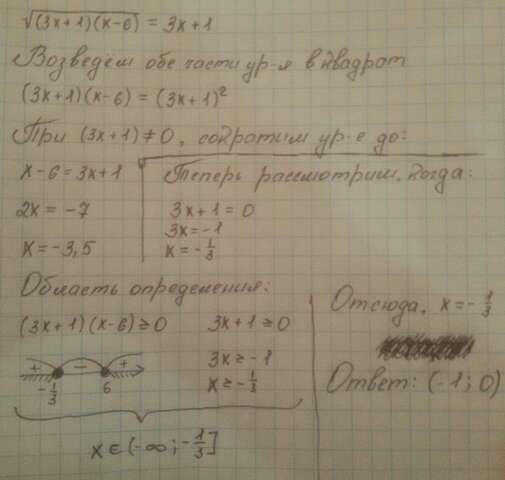 √(3x+1)(x-6) = 3x+1
Возведём обе части ур-я в квадрат
(3x+1)(x-6) = (3x+1)²
При (3x+1)≠0, сократим ур-е до:
x-6=3x+1
2x = -7
x=-3,5
Теперь рассмотрим, когда:
3x+1=0
3x=-1
x=-1/3
Область определения:
(3x+1)(x-6)≥0
+ - +
-1/3 6
3x+1≥0
3x≥-1
x≥-1/3
x∈(-∞;-1/3]
Отсюда, x=-1/3
Ответ: (-1;0)